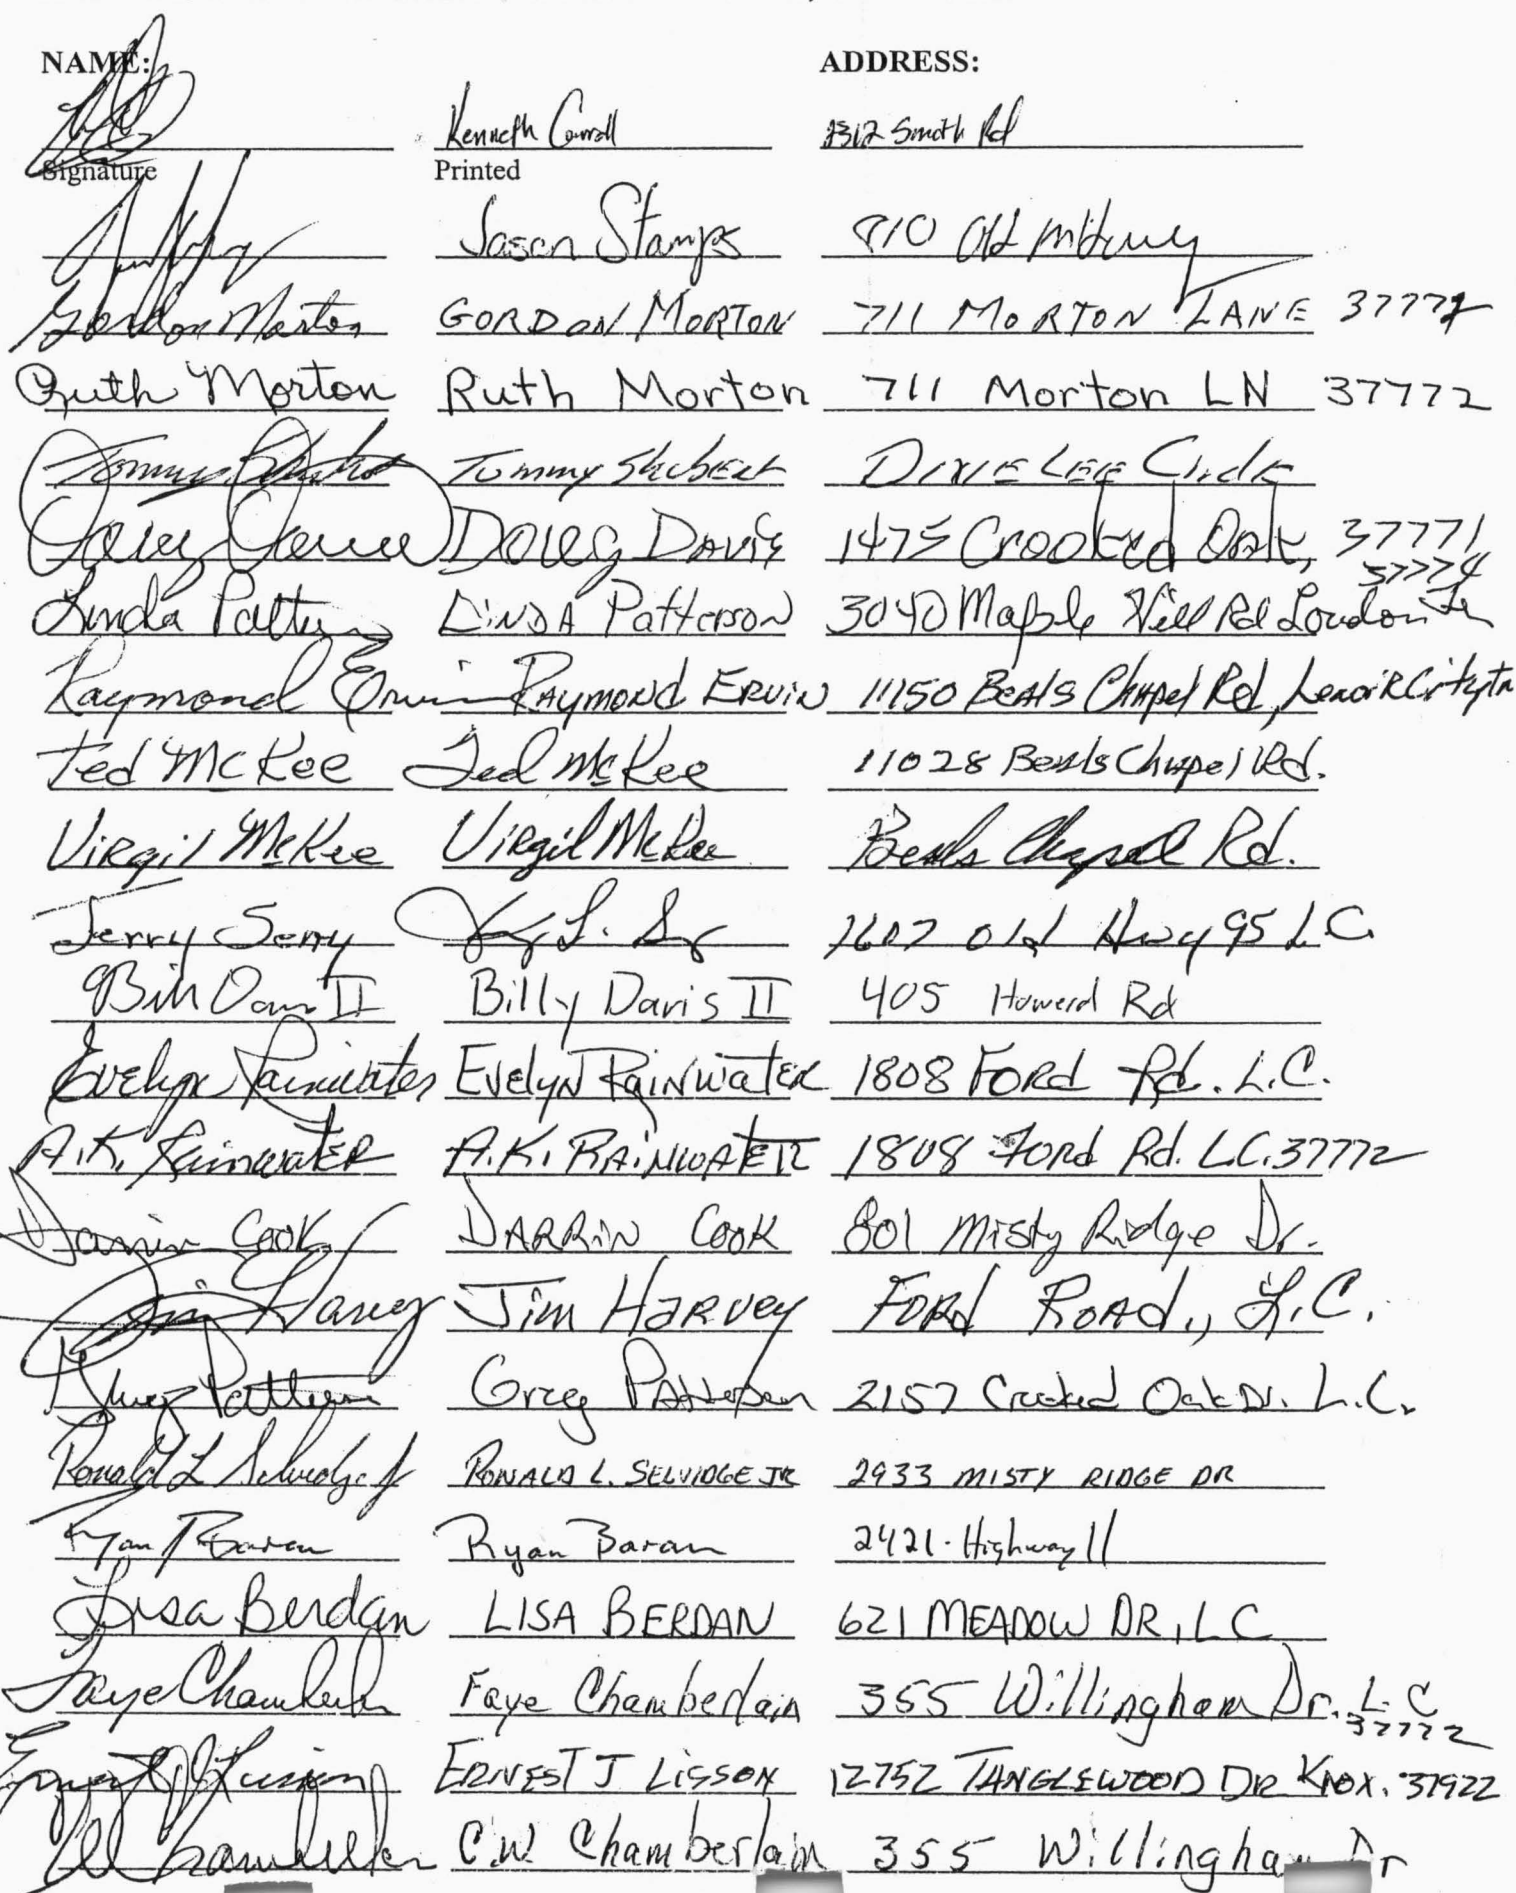 NAME: ADDRESS:
Kenneth Carroll 2312 Smith Rd
Signature Printed
Jason Stamps 810 Old
Gordon Morton GORDON MORTON 711 MORTON LANE 37772
Ruth Morton Ruth Morton 711 Morton LN 37772
Tommy Tommy Shubert DIXIE LEE Circle
DOUG DAVIS 1475 Crooked Oak, 37771
37774
Linda Patterson LINDA Patterson 3040 Maple Hill Rd Loudon Tn
Raymond Ervin RAYMOND ERVIN 11150 Beals Chapel Rd, Lenoir City tn
Ted McKee Ted McKee 11028 Beals Chapel Rd.
Virgil McKee Virgil McKee Beals Chapel Rd.
Jerry Serry 1607 Old Hwy 95 L.C.
Bill Davis II Billy Davis II 405 Howerd Rd
Evelyn Rainwater EvelyN RaiNwatER 1808 FORd Rd. L.C.
A.K. RainwatER A.K. RAiNWATER 1808 FORd Rd. L.C. 37772
Darrin Cook DARRiN COOK 801 Misty Ridge Dr.
Jim Harvey Jim HARVEY FORd ROAD., L.C.
Greg Patterson Greg PAtterson 2157 Crooked Oak Dr. L.C.
Ronald L Selvidge Jr RONALD L. SELVIDGE JR 2933 MISTY RIDGE DR
Ryan Baran Ryan Baran 2421 - Highway 11
Lisa Berdan LISA BERDAN 621 MEADOW DR, LC
Faye Chamberlain Faye Chamberlain 355 Willingham Dr. L.C
37772
Ernest J Lisson ERNEST J LISSON 12752 TANGLEWOOD DR KNOX. 37922
CW Chamberlain C.W. Chamberlain 355 Willingham Dr